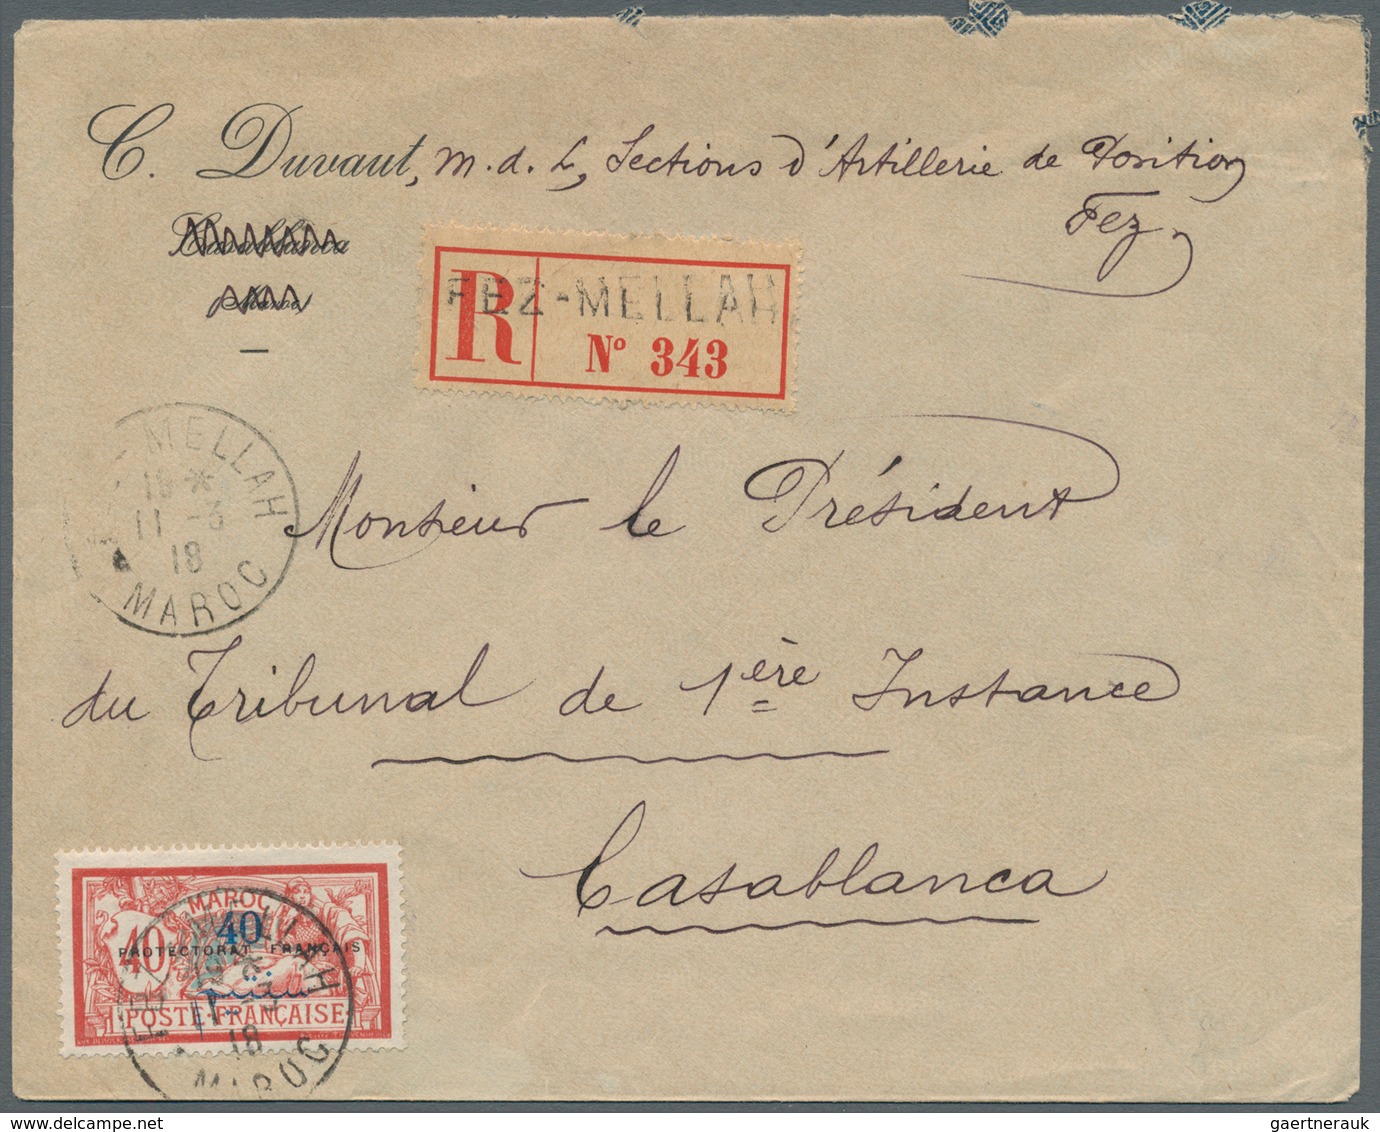 C. Duvaut, m. d. L, Sections d'Artillerie de Position
Fez
Casablanca
Maroc
R
FEZ-MELLAH
Nº 343
MELLAH
18 *
11 -3
18
MAROC
Monsieur le Président
du Tribunal de 1ère Instance
Casablanca
MAROC
40
40
PROTECTORAT FRANÇAIS
POSTE FRANÇAISE
MELLAH
11 -3
18
MAROC
gaertnerauk
delcampe.net